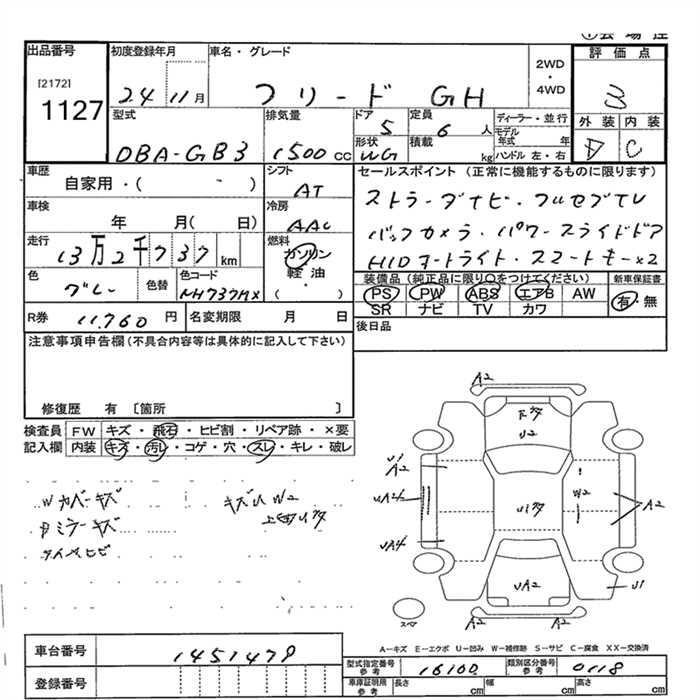 出品番号 初度登録年月 車名・グレード 2WD・4WD 評価点
[2172] 1127 24 11月 フリード GH 3
型式 排気量 ドア 5 定員 6人 ディーラー・並行 外装 内装
DBA-GB3 1500cc 形状 WG 積載 kg モデル年式 年 ハンドル 左・右 D C
車歴 シフト セールスポイント (正常に機能するものに限ります)
自家用・( ) AT
車検 冷房
年 月( 日) AAC
バックカメラ・パワースライドドア
走行 燃料
13万2千737km ガソリン
HIDオートライト・スマートキー×2
色 色替 色コード 軽油・( )
グレー NH737MX
装備品(純正品に限り○をつけてください) 新車保証書
PS PW ABS エアB AW 有・無
SR ナビ TV カワ
R券 11,760円 名変期限 月 日 後日品
注意事項申告欄(不具合内容等は具体的に記入して下さい)
修復歴 有 〔箇所 〕
検査員 FW キズ・飛石・ヒビ割・リペア跡・×要
記入欄 内装 キズ・汚レ・コゲ・穴・スレ・キレ・破レ
Wカバーキズ キズU W2
ミラーキズ
A2
U2
U1
A2
W2
A2
UA2
U1
A2 A2
スペ
A-キズ E-エクボ U-凹み W-補修跡 S-サビ C-腐食 XX-交換済
車台番号 1451479
型式指定番号 参考 16100 類別区分番号 参考 0118
登録番号
車庫証明用 参考 長さ cm 幅 cm 高さ cm